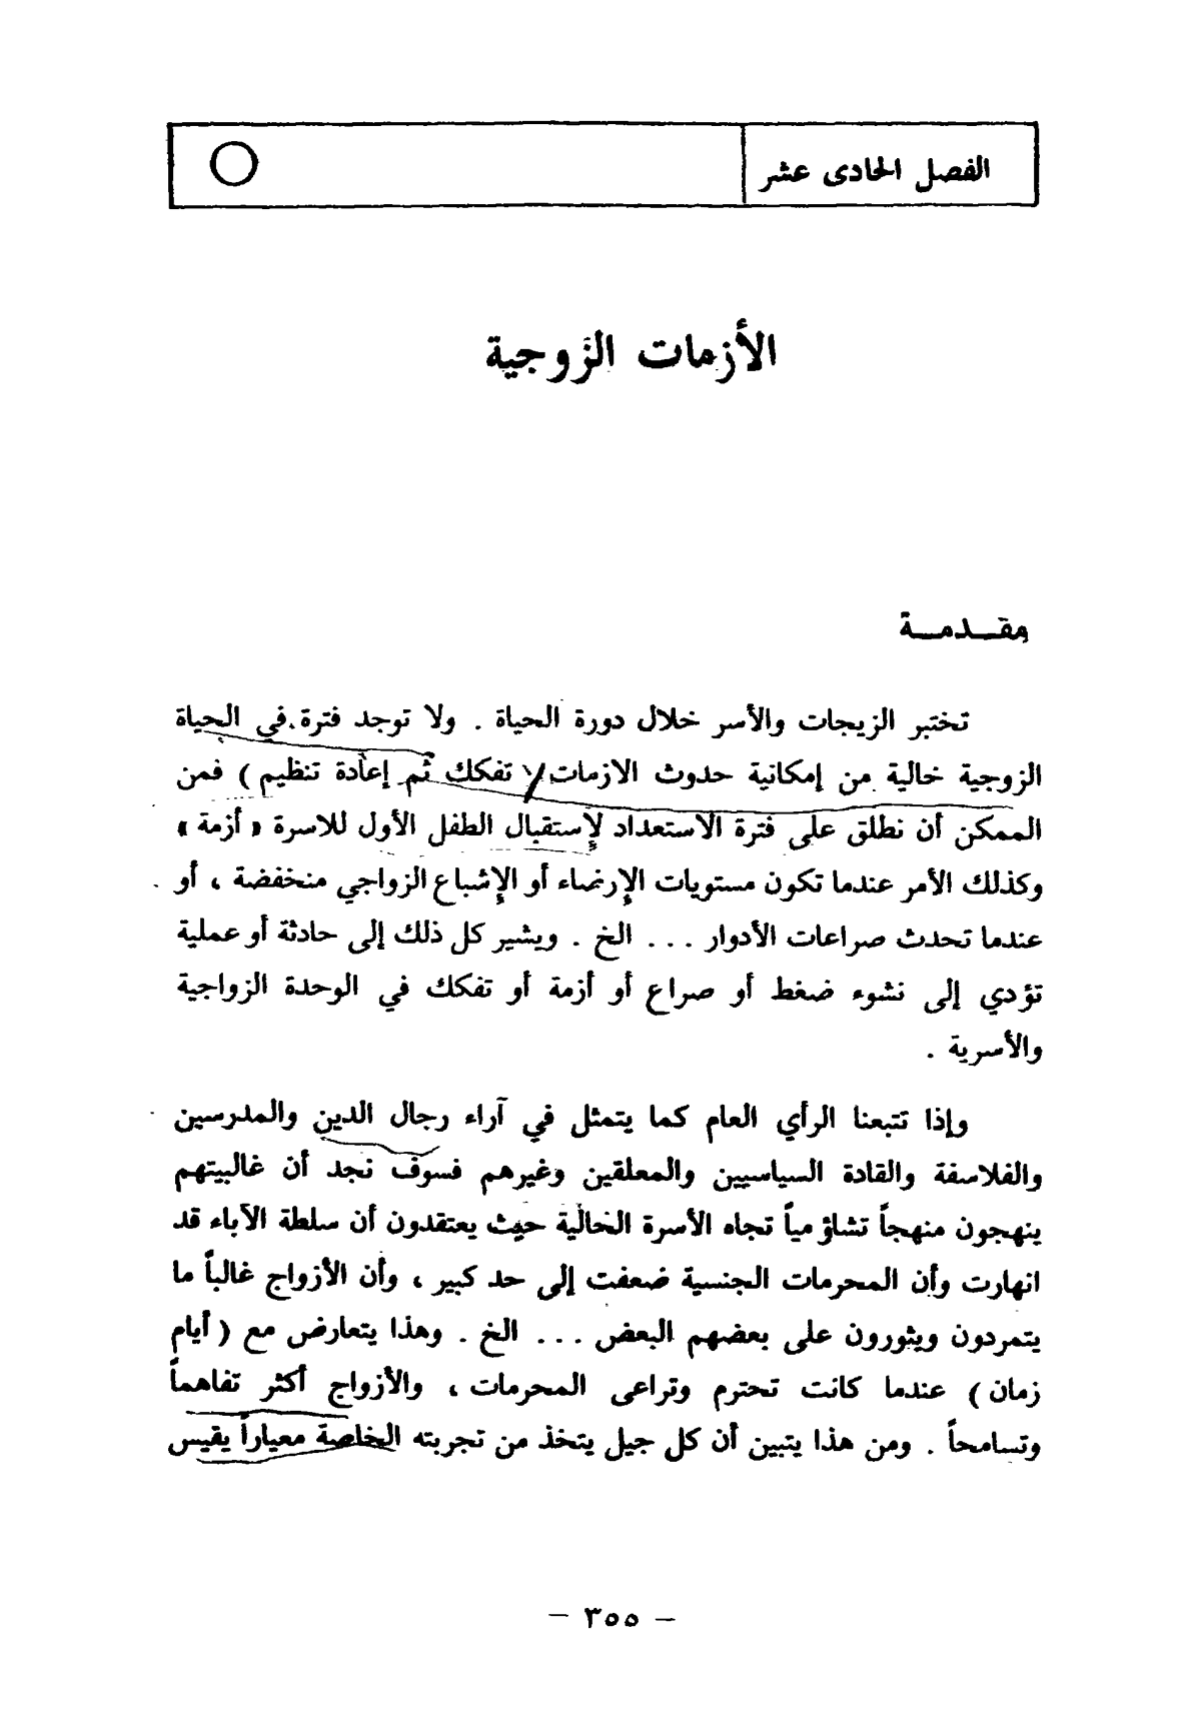 الفصل الحادى عشر
الأزمات الزوجية
مقـدمـة
تختبر الزيجات والأسر خلال دورة الحياة . ولا توجد فترة في الحياة
الزوجية خالية من إمكانية حدوث الازمات ( تفكك ثم إعادة تنظيم ) فمن
الممكن أن نطلق على فترة الاستعداد لإستقبال الطفل الأول للاسرة « أزمة »
وكذلك الأمر عندما تكون مستويات الإرضاء أو الإشباع الزواجي منخفضة ، أو
عندما تحدث صراعات الأدوار ... الخ . ويشير كل ذلك إلى حادثة أو عملية
تؤدي إلى نشوء ضغط أو صراع أو أزمة أو تفكك في الوحدة الزواجية
والأسرية .
وإذا تتبعنا الرأي العام كما يتمثل في آراء رجال الدين والمدرسين
والفلاسفة والقادة السياسيين والمعلقين وغيرهم فسوف نجد أن غالبيتهم
ينهجون منهجاً تشاؤمياً تجاه الأسرة الحالية حيث يعتقدون أن سلطة الآباء قد
انهارت وأن المحرمات الجنسية ضعفت إلى حد كبير ، وأن الأزواج غالباً ما
يتمردون ويثورون على بعضهم البعض ... الخ . وهذا يتعارض مع ( أيام
زمان ) عندما كانت تحترم وتراعى المحرمات ، والأزواج أكثر تفاهماً
وتسامحاً . ومن هذا يتبين أن كل جيل يتخذ من تجربته الخاصة معياراً يقيس
— ٣٥٥ —